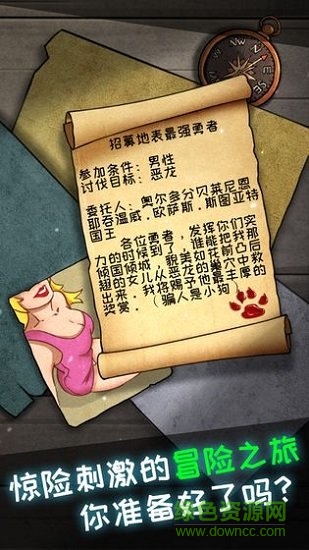 招募地表最强勇者
参加条件：男性
讨伐目标：恶龙
委托人：奥尔多分贝莱尼恩
耶吞温威．欧萨斯．斯图亚特
国王
各位勇者，发挥你们实
力的时候到了，谁能把我那
倾国倾城、貌美如花前凸后
翘的女儿从恶龙的巢穴中救
出来，我将赐予他最丰厚的
奖赏，骗人是小狗
惊险刺激的冒险之旅
你准备好了吗？
绿色资源网
www.downcc.com